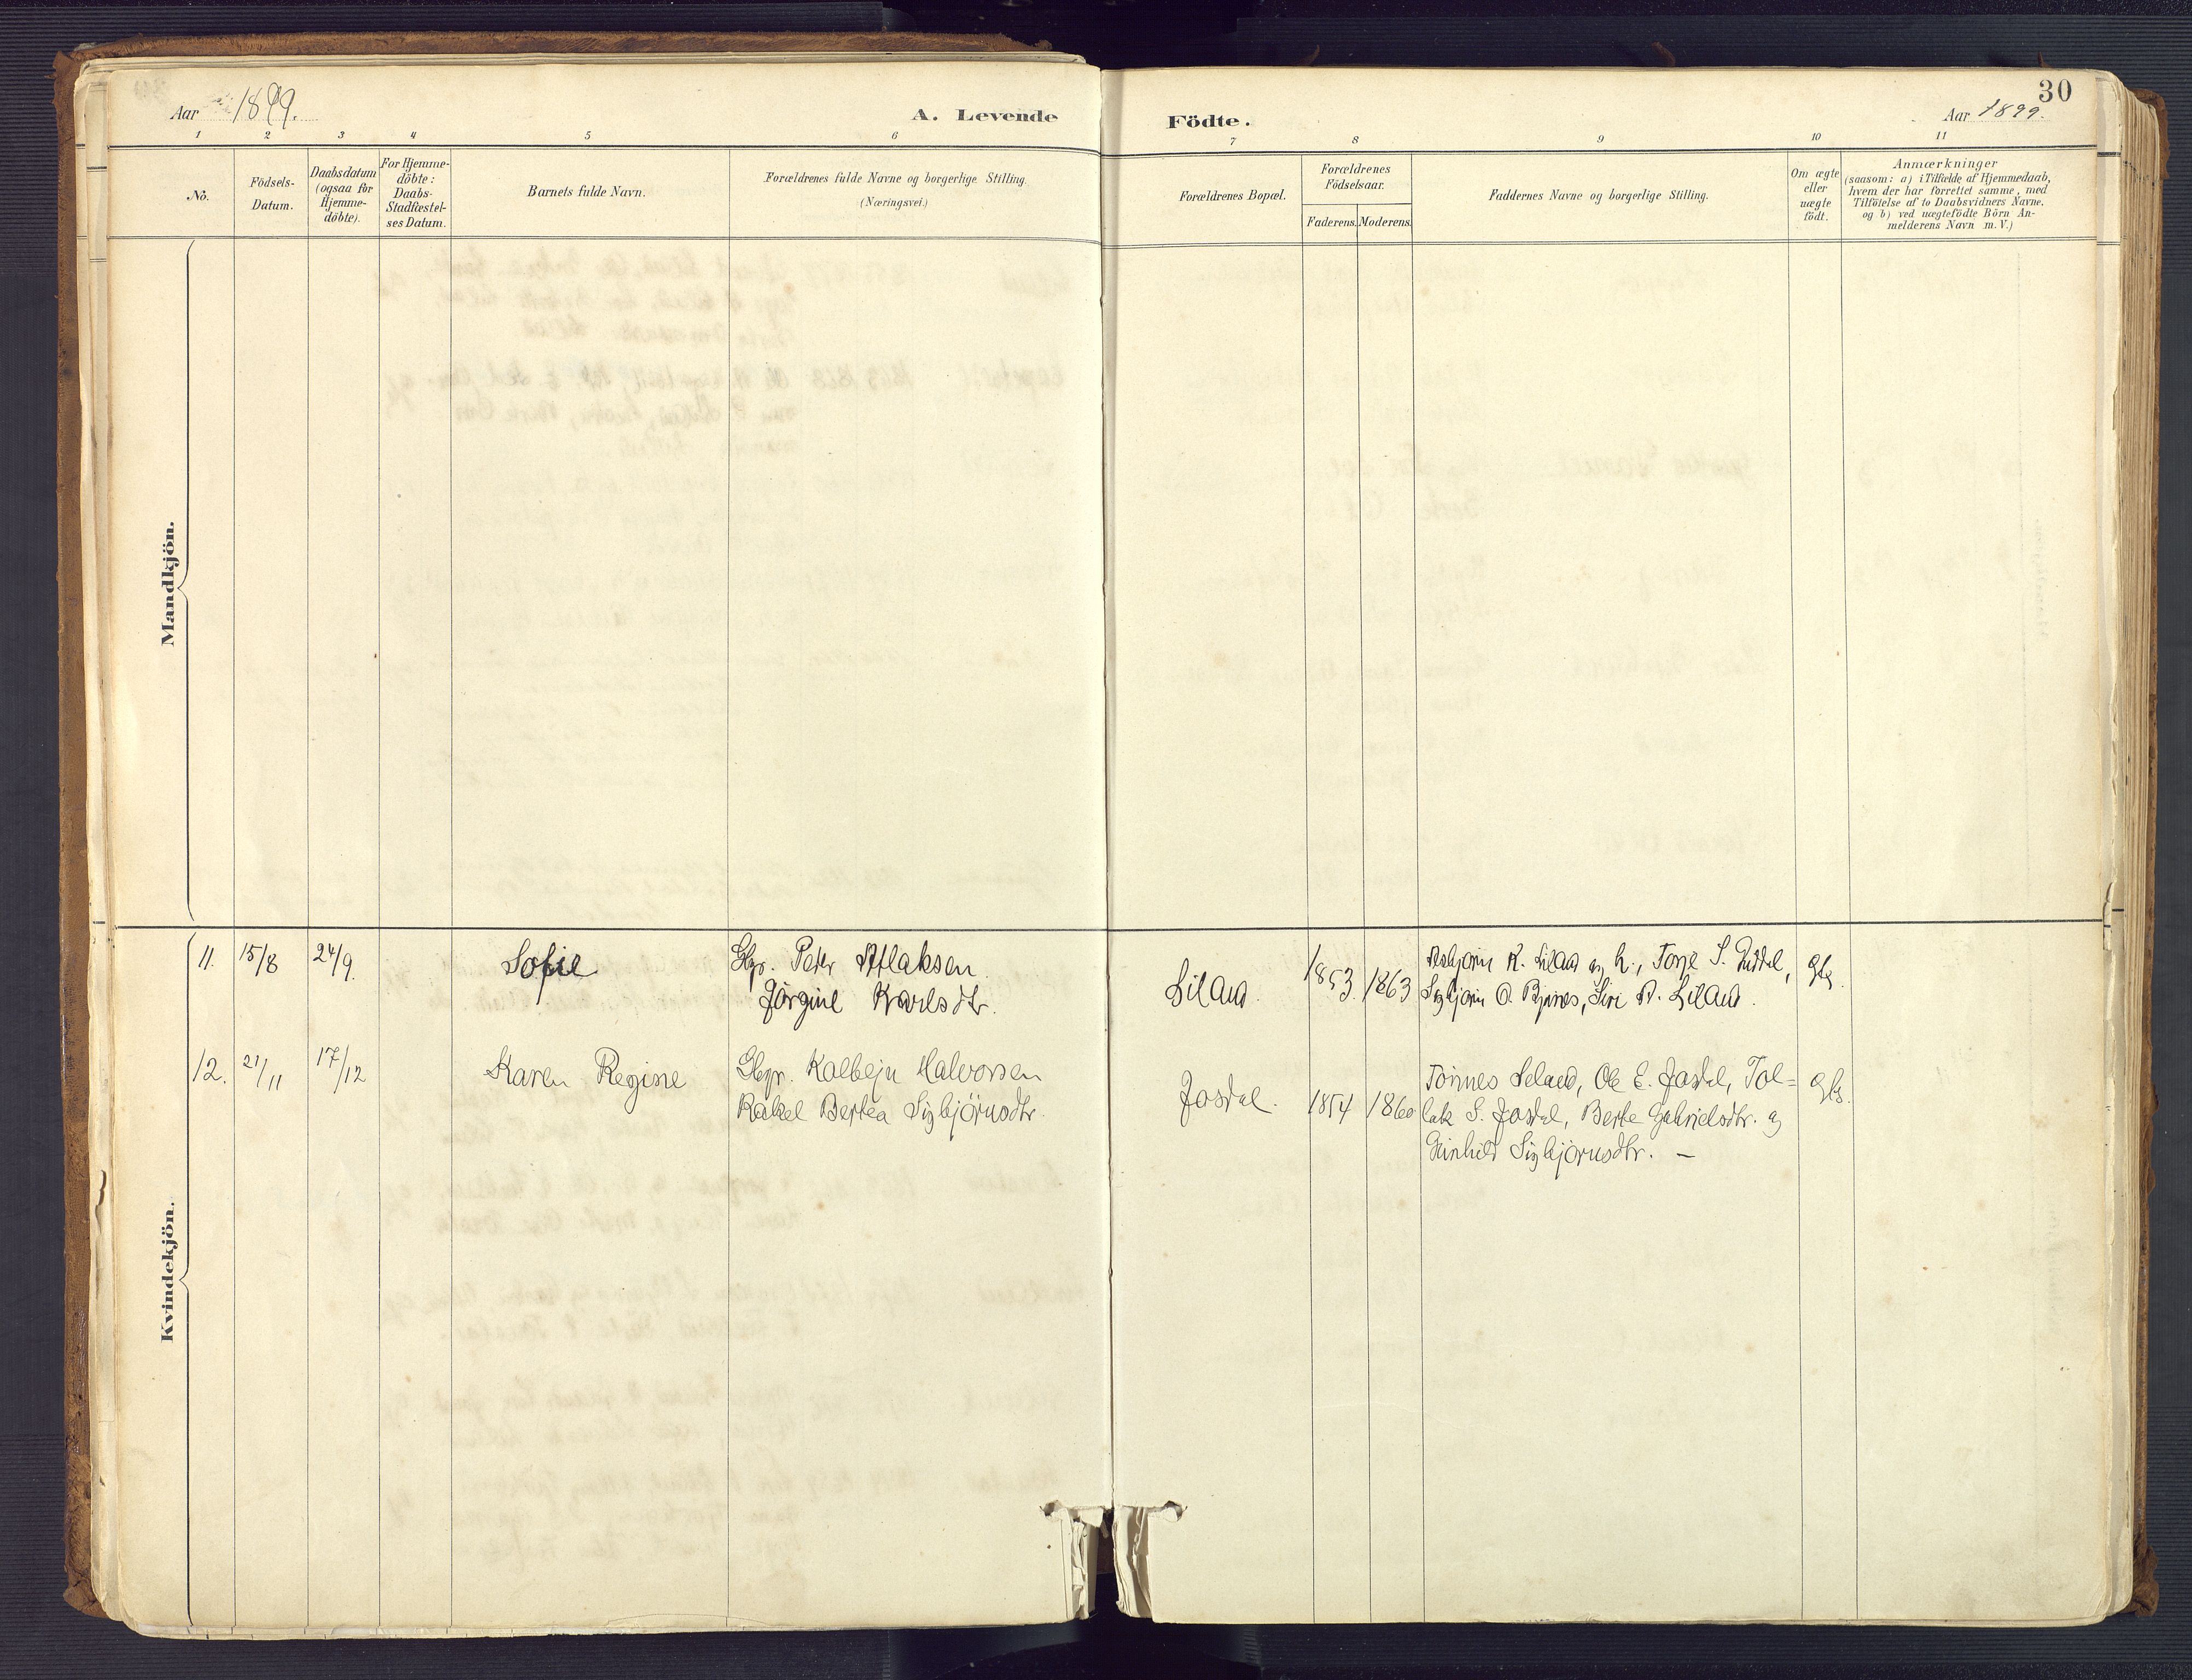 30
Aar 1899.
A. Levende Födte.
Aar 1899.
1 2 3 4 5 6 7 8 9 10 11
No.
Födsels-
Datum.
Daabsdatum
(ogsaa for
Hjemme-
döbte).
For Hjemme-
döbte:
Daabs-
Stadfæstel-
ses Datum.
Barnets fulde Navn.
Forældrenes fulde Navne og borgerlige Stilling.
(Næringsvei.)
Forældrenes Bopæl.
Forældrenes
Födselsaar.
Faderens. Moderens.
Faddernes Navne og borgerlige Stilling.
Om ægte
eller
uægte
födt.
Anmærkninger
(saasom: a) i Tilfælde af Hjemmedaab,
hvem der har forrettet samme, med
Tilföielse af to Daabsvidners Navne.
og b) ved uægtefödte Börn An-
melderens Navn m.V.)
Mandkjön.
Kvindekjön.
11. 15/8 24/9. Sofie
Gbr. Peter Atlaksen
Jörgine Karlsdtr.
Liland. 1853. 1863
Asbjörn K. Liland og h., Torje S.
Sigbjörn O. Siri A. Liland.
12. 21/11 17/12 Karen Regine
Gbr. Kolbejn Halvorsen
Rakel Bertea Sigbjörnsdtr.
Josdal. 1854 1860
Tönnes Seland, Ole E. Josdal, Tol=
lak S. Josdal, Berte Gabrielsdtr. og
Gunhild Sigbjörnsdtr. –